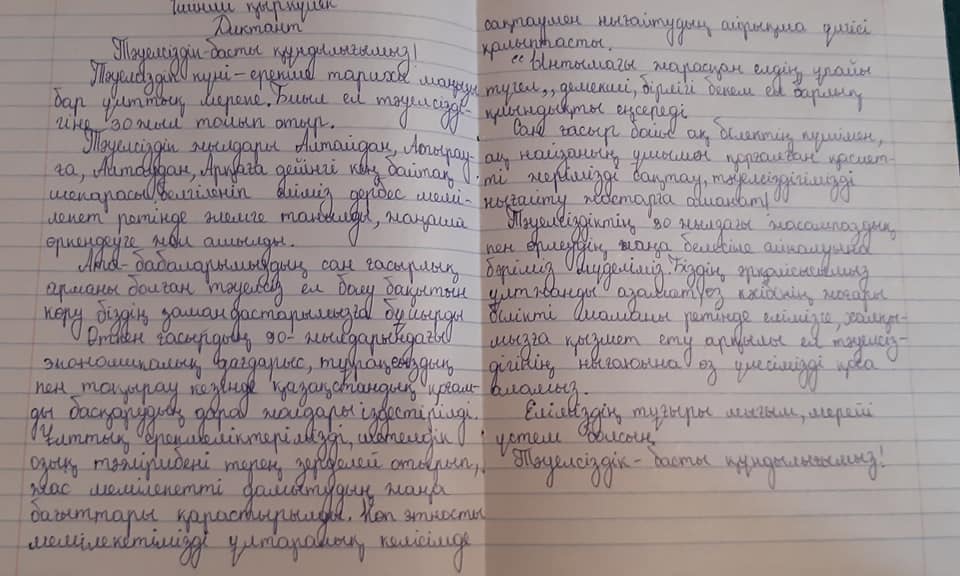 қыркүйек
Диктант
Тәуелсіздік-басты құндылығымыз!
Тәуелсіздік күні-ерекше тарихи маңызы
бар ұлттық мереке. Биыл ел тәуелсізді-
гіне 30 жыл толып отыр.
Тәуелсіздік жылдары Алтайдан, Атырау-
ға, Алатаудан, Арқаға дейінгі кең байтақ
шекарасы белгіленіп еліміз дербес мемі-
лекет ретінде әлемге танылды, жаңаша
өркендеуге жол ашылды.
Ата-бабаларымыздың сан ғасырлық
арманы болған тәуелсіз ел болу бақытын
көру біздің замандастарымызға бұйырды
Өткен ғасырдың 90-жылдарындағы
экономикалық дағдарыс, тұрақсыздық
пен тоқырау кезінде қазақстандық қоғам-
ды басқарудың дара жолдары іздестірілді.
Ұлттық ерекшеліктерімізді, шетелдік
озық тәжірибені терең зерделей отырып,
жас мемілекетті дамытудың жаңа
бағыттары қарастырылды. Көп этносты
мемілекетімізді ұлтаралық келісімде
сақтаумен нығайтудың айрықша үлгісі
қалыптасты.
"Ынтымағы жарасқан елдің ұрайы
түгел,, демекші, бірлігі бекем ел барлық
қиындықты еңсереді
Сан ғасыр бойы ақ білектің күшімен,
ақ найзаның ұшымен қорғалған қасиет-
ті жерімізді сақтау, тәуелсіздігімізді
нығайту жастарға аманат!
Тәуелсіздіктің 30 жылдағы жасампаздық
пен өрлеудің жаңа белесіне айналуына
бәріміз мүдделіміз. Біздің әрқайсымыз
ұлтжанды азамат, өз кәсібінің жоғары
білікті маманы ретінде елімізге, халқы-
мызға қызмет ету арқылы ел тәуелсіз-
дігінің нығаюына өз үлесімізді қоса
аламыз.
Еліміздің тұғыры мығым, мерейі
үстем болсын,
Тәуелсіздік-басты құндылығымыз!